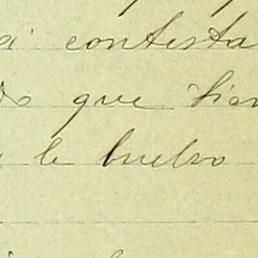 a contesta
do que tien
le buelvo